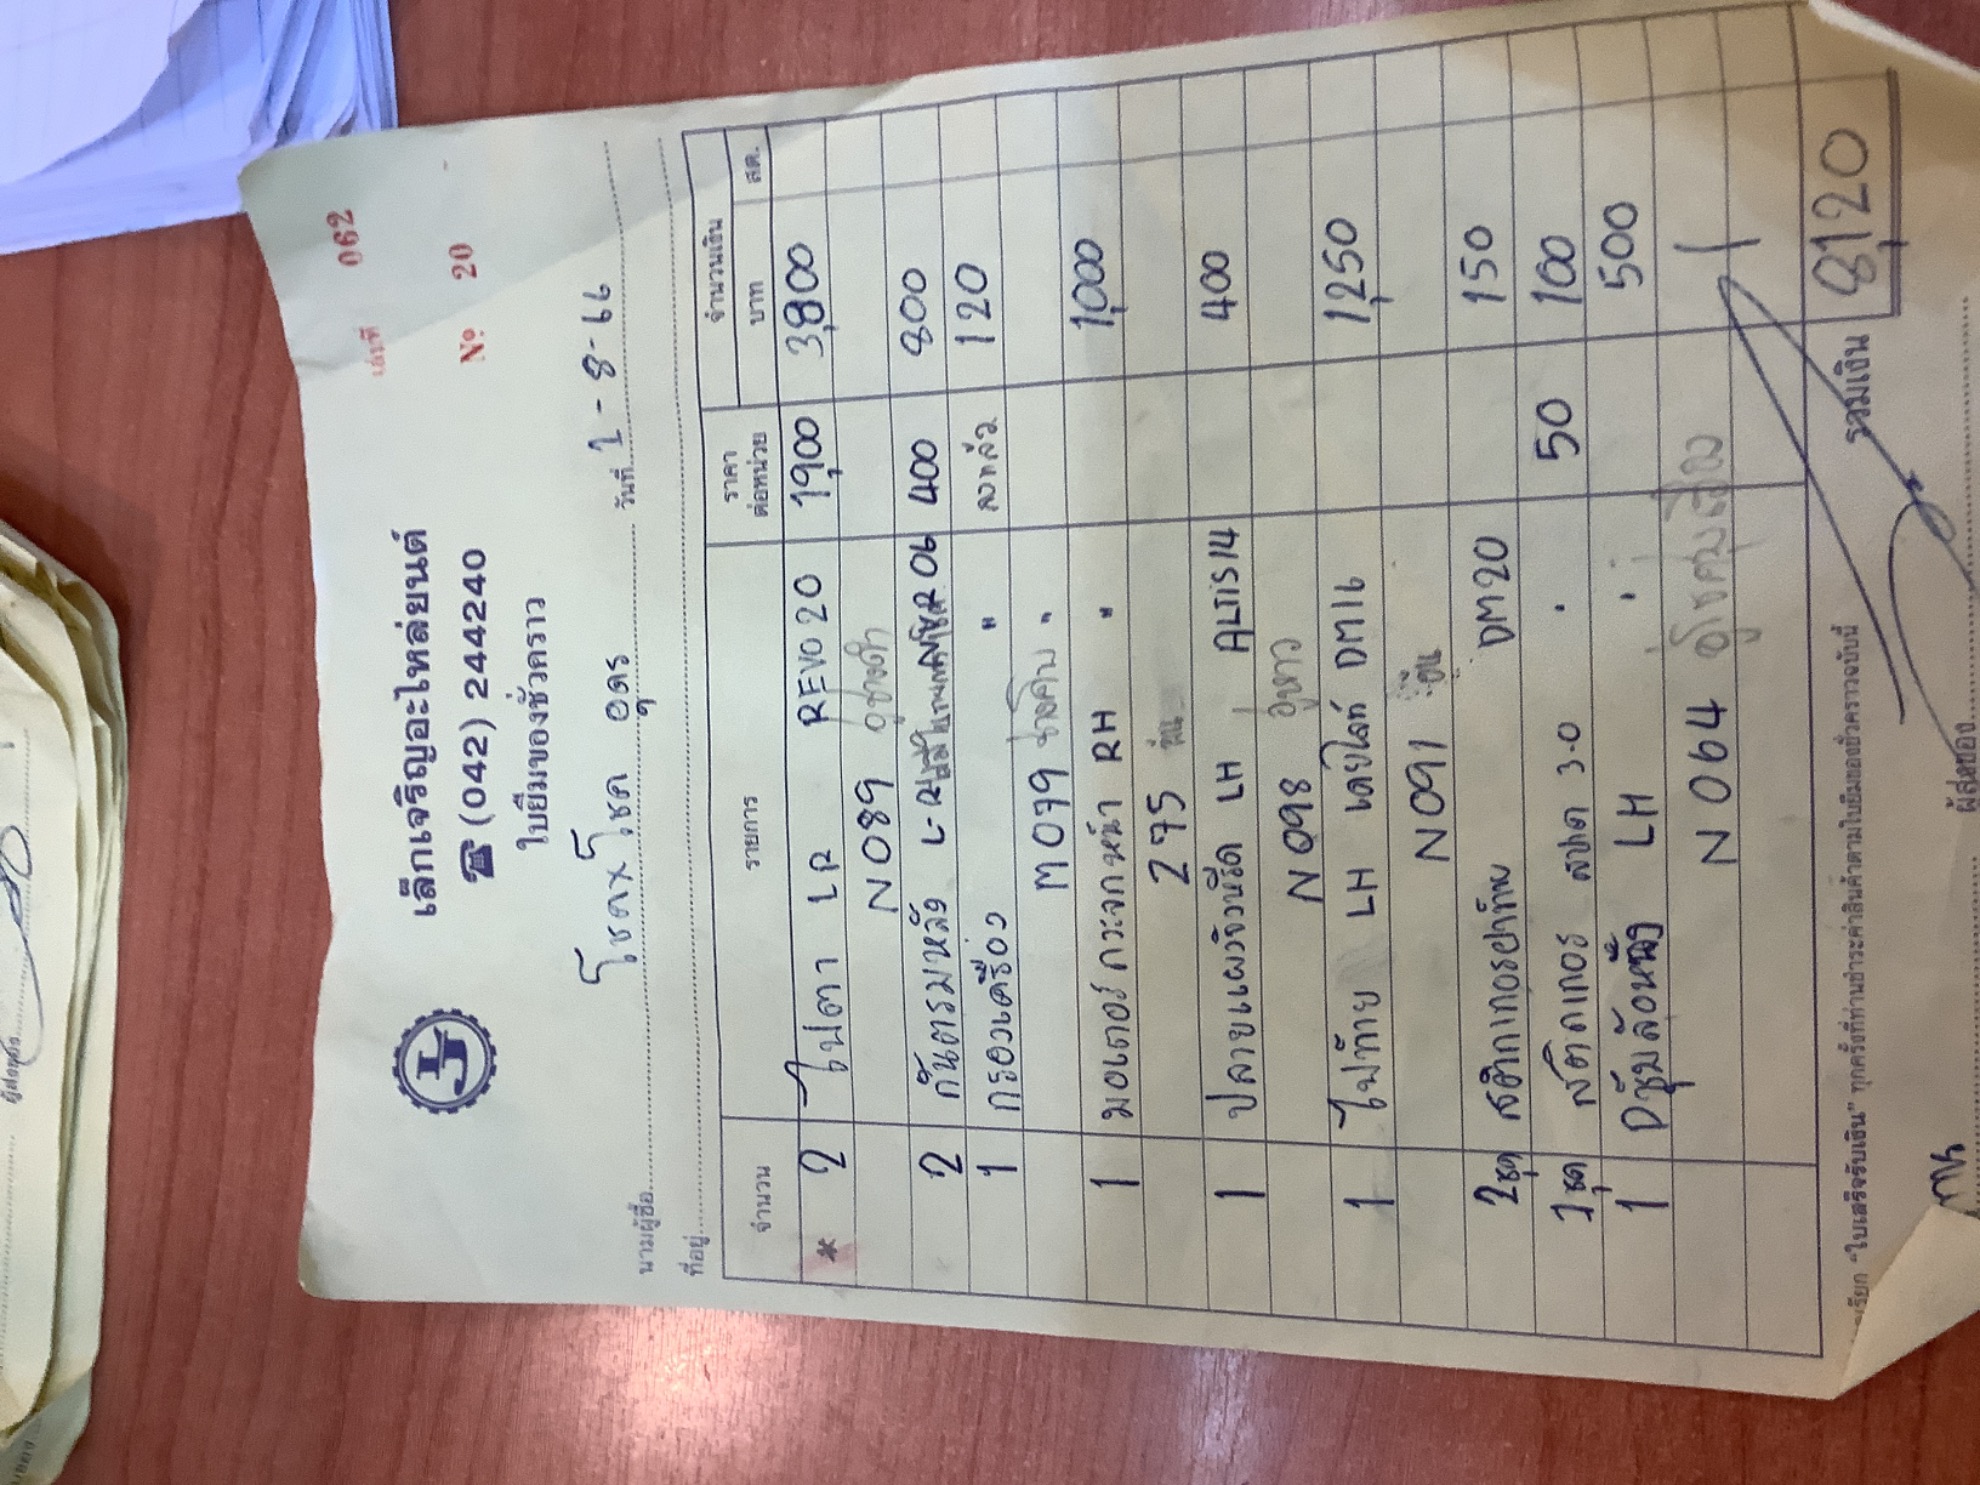 เล่มที่ 062
เล็กเจริญอะไหล่ยนต์
☎ (042) 244240
№ 20
ใบยืมของชั่วคราว
นามผู้ซื้อ โชคxโชค อุดร วันที่ 1-8-66
ที่อยู่
จำนวน รายการ ราคาต่อหน่วย จำนวนเงิน บาท สต.
* 2 ไฟตา LR REVO 20 1,900 3,800
N 089 อู่ช่างดำ
2 กันตรมหลัง L-R 06 400 800
1 กรองเครื่อง " 120
M 079 "
1 มอเตอร์กระจกหน้า RH " 1,000
295
1 ปลายแผงจังหรีด LH ALTIS 14 400
N 098
1 ไฟท้าย LH เดย์ไลท์ DM16 1,250
N 091
2 ชุด สติกเกอร์ฝาท้าย DM20 150
2 ชุด สติกเกอร์ 3.0 " 50 100
1 LH " 500
N 064
รวมเงิน 8,120
เรียก "ใบเสร็จรับเงิน" ทุกครั้งที่ท่านชำระค่าสินค้าตามใบยืมของชั่วคราวฉบับนี้
ผู้ส่งของ
ผู้ส่งของ